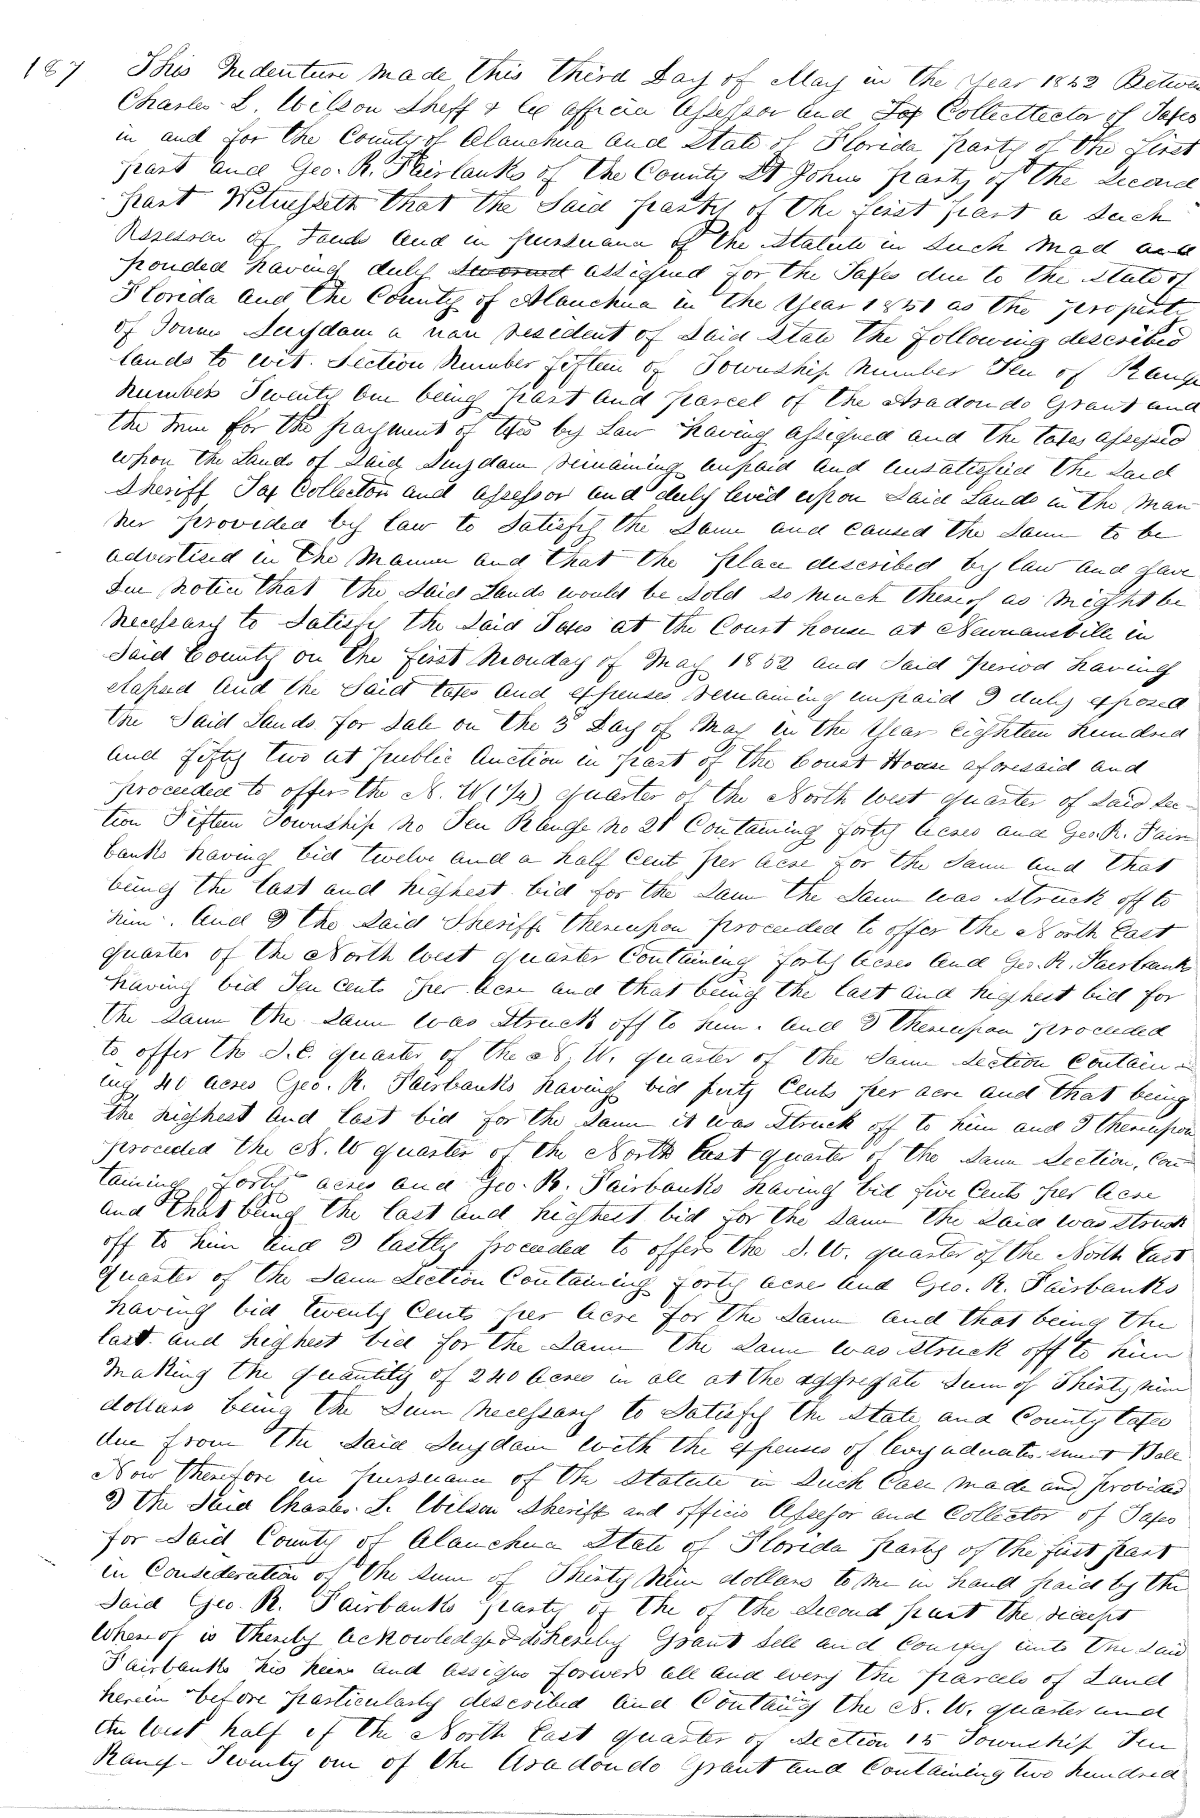 187 This Indenture made this third Day of May in the Year 1852 Between
Charles L. Wilson Sheff & Ex officio Assessor and Tax Collecttector of Taxes
in and for the County of Alauchua and State of Florida party of the first
part and Geo. R. Fairbanks of the County St Johns party of the Second
part Witnesseth that the Said party of the first part a such
Assessor of Lands and in pursuance of the Statute in Such Mad and
having duly assigned for the Taxes due to the State of
Florida and the County of Alauchua in the Year 1851 as the property
of Suydam a non resident of Said State the following described
lands to wit. Section Number fifteen of Township Number Ten of Range
Number Twenty one being part and parcel of the Aradondo Grant and
the time for the payment of taxes by Law having assigned and the taxes assessed
upon the Lands of Said Suydam remaining unpaid and unsatisfied the Said
Sheriff Tax Collector and assessor and duly levid upon Said Lands in the man
ner provided by law to Satisfy the Same and caused the Same to be
advertised in the Manner and that the place described by law and gave
due notice that the Said Lands would be Sold so much thereof as might be
necessary to Satisfy the Said Taxes at the Court house at Newnansville in
Said County on the first Monday of May 1852 and Said period having
elapsed and the Said taxes and expenses remaining unpaid I duly exposed
the Said Lands for Sale on the 3d Day of May in the Year eighteen hundred
and fifty two at public Auction in part of the Court House aforesaid and
proceeded to offer the N. W (1/4) quarter of the North West quarter of Said Sec-
tion Fifteen Township no Ten Range no 21 Containing forty acres and Geo. R. Fair-
banks having bid twelve and a half Cent per acre for the Same and that
being the last and highest bid for the Same the Same was Struck off to
him. And I the Said Sheriff thereupon proceeded to offer the North East
quarter of the North West quarter Containing forty acres and Geo. R. Fairbanks
having bid Ten cents per acre and that being the last and highest bid for
the Same the Same was Struck off to him. And I thereupon proceeded
to offer the S. E. quarter of the N. W. quarter of the Same Section Contain-
ing 40 acres Geo. R. Fairbanks having bid forty Cents per acre and that being
the highest and last bid for the Same it was Struck off to him and I thereupon
proceeded the N. W quarter of the North East quarter of the Same Section, Con-
taining forty acres and Geo. R. Fairbanks having bid five Cents per acre
and that being the last and highest bid for the Same the Said was Struck
off to him And I lastly proceeded to offer the S. W. quarter of the North East
quarter of the Same Section Containing forty acre and Geo. R. Fairbanks
having bid twenty Cents per Acre for the Same and that being the
last and highest bid for the Same the Same was Struck off to him
Making the quantity of 240 Acres in all at the aggregate Sum of Thirty nine
dollars being the Sum necessary to Satisfy the State and County taxes
due from the Said Suydam with the expenses of levy
Now therefore in pursuance of the Statute in Such Case made and provided
I the Said Charles L. Wilson Sheriff and officio Assessor and Collector of Taxes
for Said County of Alauchua State of Florida party of the first part
in Consideration of the Sum of Thirty Nine dollars to me in hand paid by the
Said Geo. R. Fairbanks party of the of the Second part the reciept
Whereof is thereby acknowledged do hereby Grant Sell and Convey unto the Said
Fairbanks his heirs and assigns forwers all and every the parcels of Land
herein before particularly described and Containg the N. W. quarter and
the West half of the North East quarter of Section 15 Township Ten
Rang- Twenty one of the Aradondo Grant and Containing two hundred